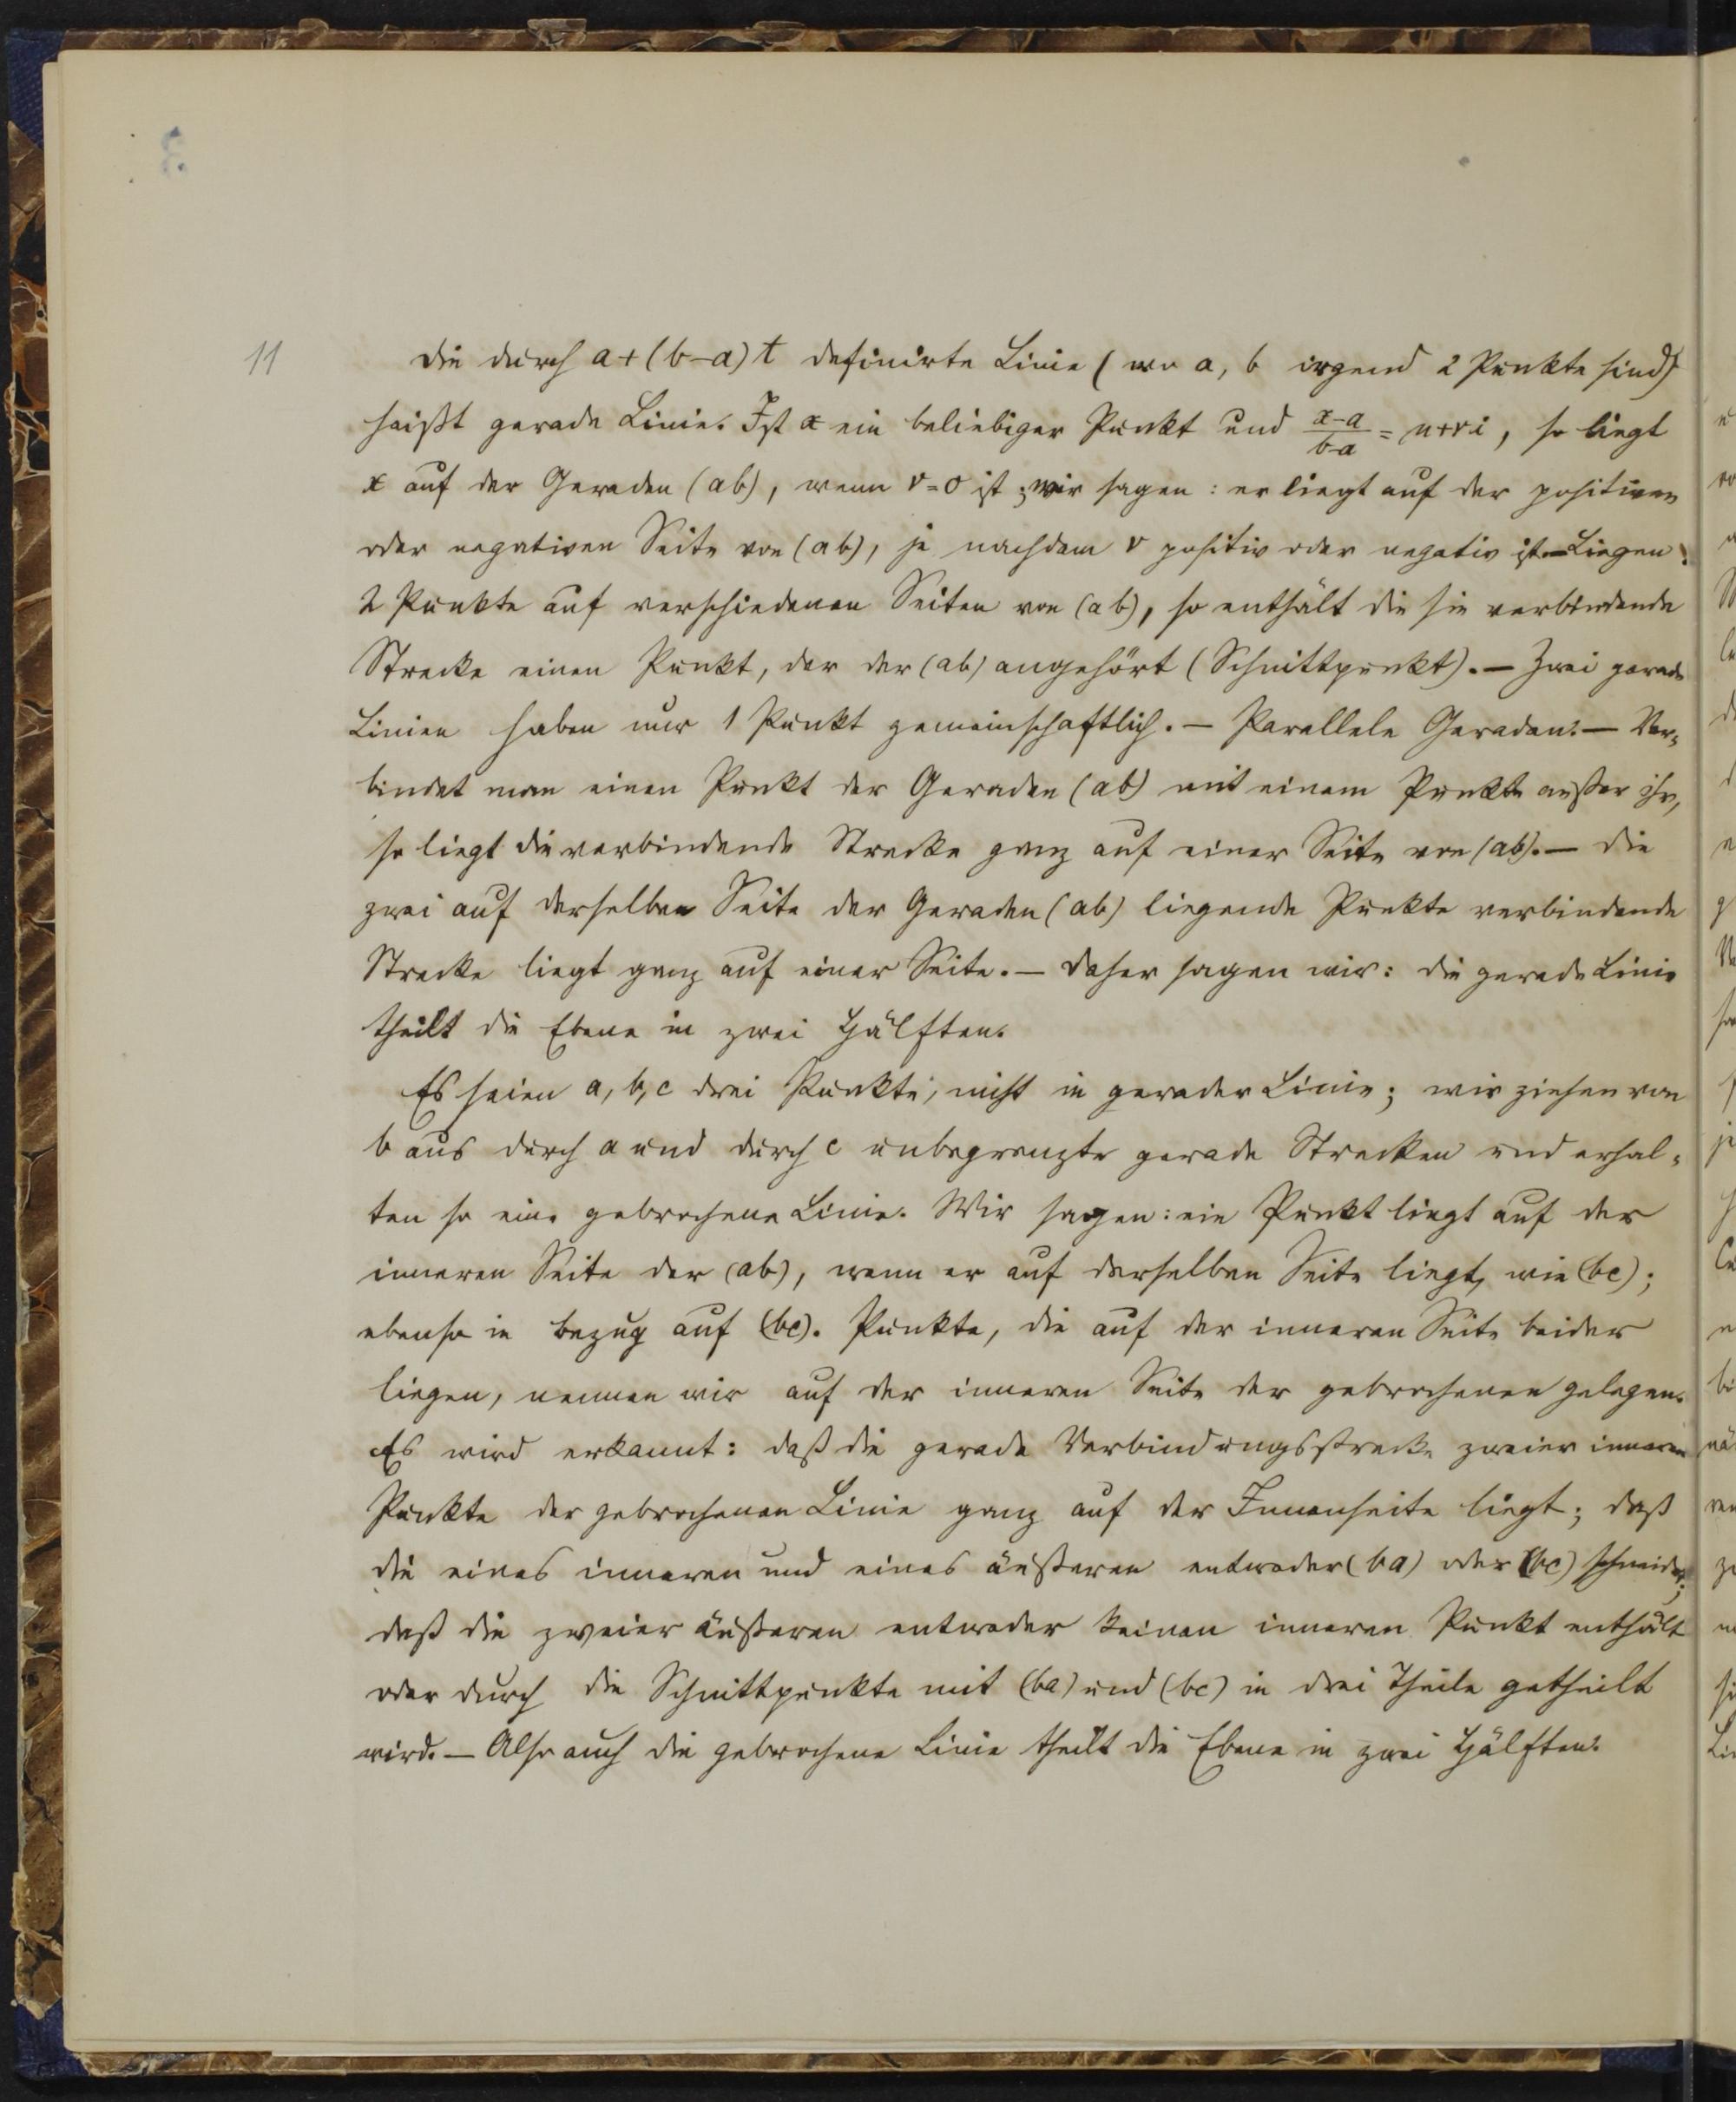 11
Die durch a+(b-a)t definirte Linie (wo a, b irgend 2 Punkte sind)
heißt gerade Linie. Ist x ein beliebiger Punkt und (x-a)/(b-a) = u+vi, so liegt
x auf der Geraden (ab), wenn v=0 ist; wir sagen: er liegt auf der positiven
oder negativen Seite von (ab), je nachdem v positiv oder negativ ist. — Liegen
2 Punkte auf verschiedenen Seiten von (ab), so enthält die sie verbindende
Strecke einen Punkt, der der (ab) angehört (Schnittpunkt). — Zwei gerade
Linien haben nur 1 Punkt gemeinschaftlich. — Parallele Geraden. — Ver-
bindet man einen Punkt der Geraden (ab) mit einem Punkte außer ihr,
so liegt die verbindende Strecke ganz auf einer Seite von (ab). — Die
zwei auf derselben Seite der Geraden (ab) liegende Punkte verbindende
Strecke liegt ganz auf einer Seite. — Daher sagen wir: die gerade Linie
theilt die Ebene in zwei Hälften.
Es seien a, b, c drei Punkte, nicht in gerader Linie; wir ziehen von
b aus durch a und durch c unbegrenzte gerade Strecken und erhal-
ten so eine gebrochene Linie. Wir sagen: ein Punkt liegt auf der
inneren Seite der (ab), wenn er auf derselben Seite liegt, wie (bc);
ebenso in bezug auf (bc). Punkte, die auf der inneren Seite beider
liegen, nennen wir auf der inneren Seite der gebrochenen gelegen.
Es wird erkannt: daß die gerade Verbindungsstrecke zweier inneren
Punkte der gebrochenen Linie ganz auf der Innenseite liegt; daß
die eines inneren und eines äußeren entweder (ba) oder (bc) schneidet;
daß die zweier äußeren entweder keinen inneren Punkt enthält
oder durch die Schnittpunkte mit (ba) und (bc) in drei Theile getheilt
wird. — Also auch die gebrochene Linie theilt die Ebene in zwei Hälften.